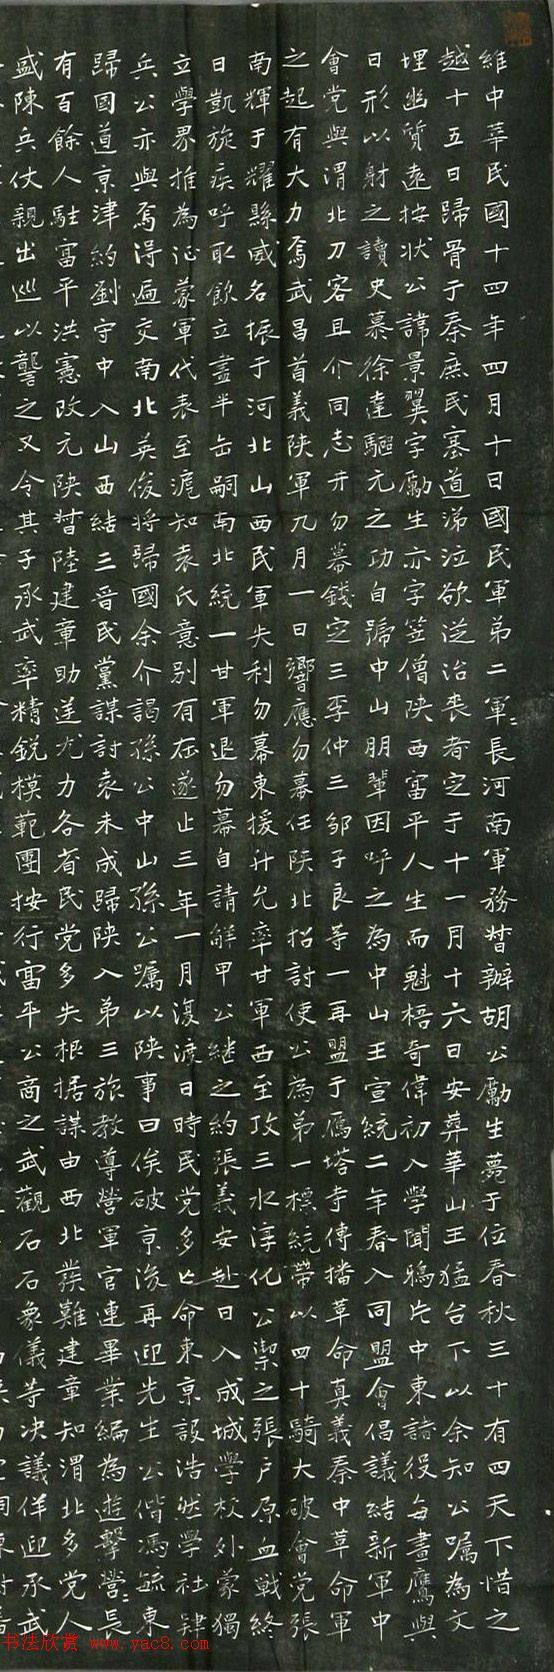 維中華民國十四年四月十日國民軍第二軍〻長河南軍務督辦胡公勵生薨于位春秋三十有四天下惜之
越十五日歸骨于秦庶民塞道涕泣欲從治喪者定于十一月十六日安葬華山王猛台下以余知公嘱為文
埋幽質遠按狀公諱景翼字勵生亦字笠僧陕西富平人生而魁梧奇偉初入學聞鴉片中東諸役每畫鷹與
日形以射之讀史慕徐達驅元之功自號中山朋輩因呼之為中山王宣統二年春入同盟會倡議結新軍中
會党與渭北刀客且介同志井勿幕錢定三李仲三邹子良等一再盟于雁塔寺傳播革命真義秦中革命軍
之起有大力焉武昌首義陕軍九月一日響應勿幕任陕北招討使公為第一標統帶以四十騎大破會党張
南輝于耀縣威名振于河北山西民軍失利勿幕東援升允率甘軍西至攻三水淳化公禦之張户原血戰終
日凱旋疾呼取飲立盡半缶嗣南北統一甘軍退勿幕自請解甲公继之約張義安赴日入成城學校外蒙獨
立學界推為征蒙軍代表至滬知袁氏意别有在遂止三年一月復渡日時民党多亡命東京設浩然學社肄
兵公亦與焉得遍交南北英俊将歸國余介謁孫公中山孫公嘱以陕事曰俟破京後再迎先生公偕馮毓東
歸國道京津約劉守中入山西結三晋民黨謀討袁未成歸陕入第三旅教導營軍官連畢業編為遊擊營〻長
有百餘人駐富平洪憲改元陕督陸建章助逆尤力各省民党多失根据謀由西北發難建章知渭北多党人
盛陳兵仗親出巡以讋之又令其子承武率精銳模範團按行富平公商之武觀石石象儀等决議佯迎承武
書法欣赏 www.yac8.com